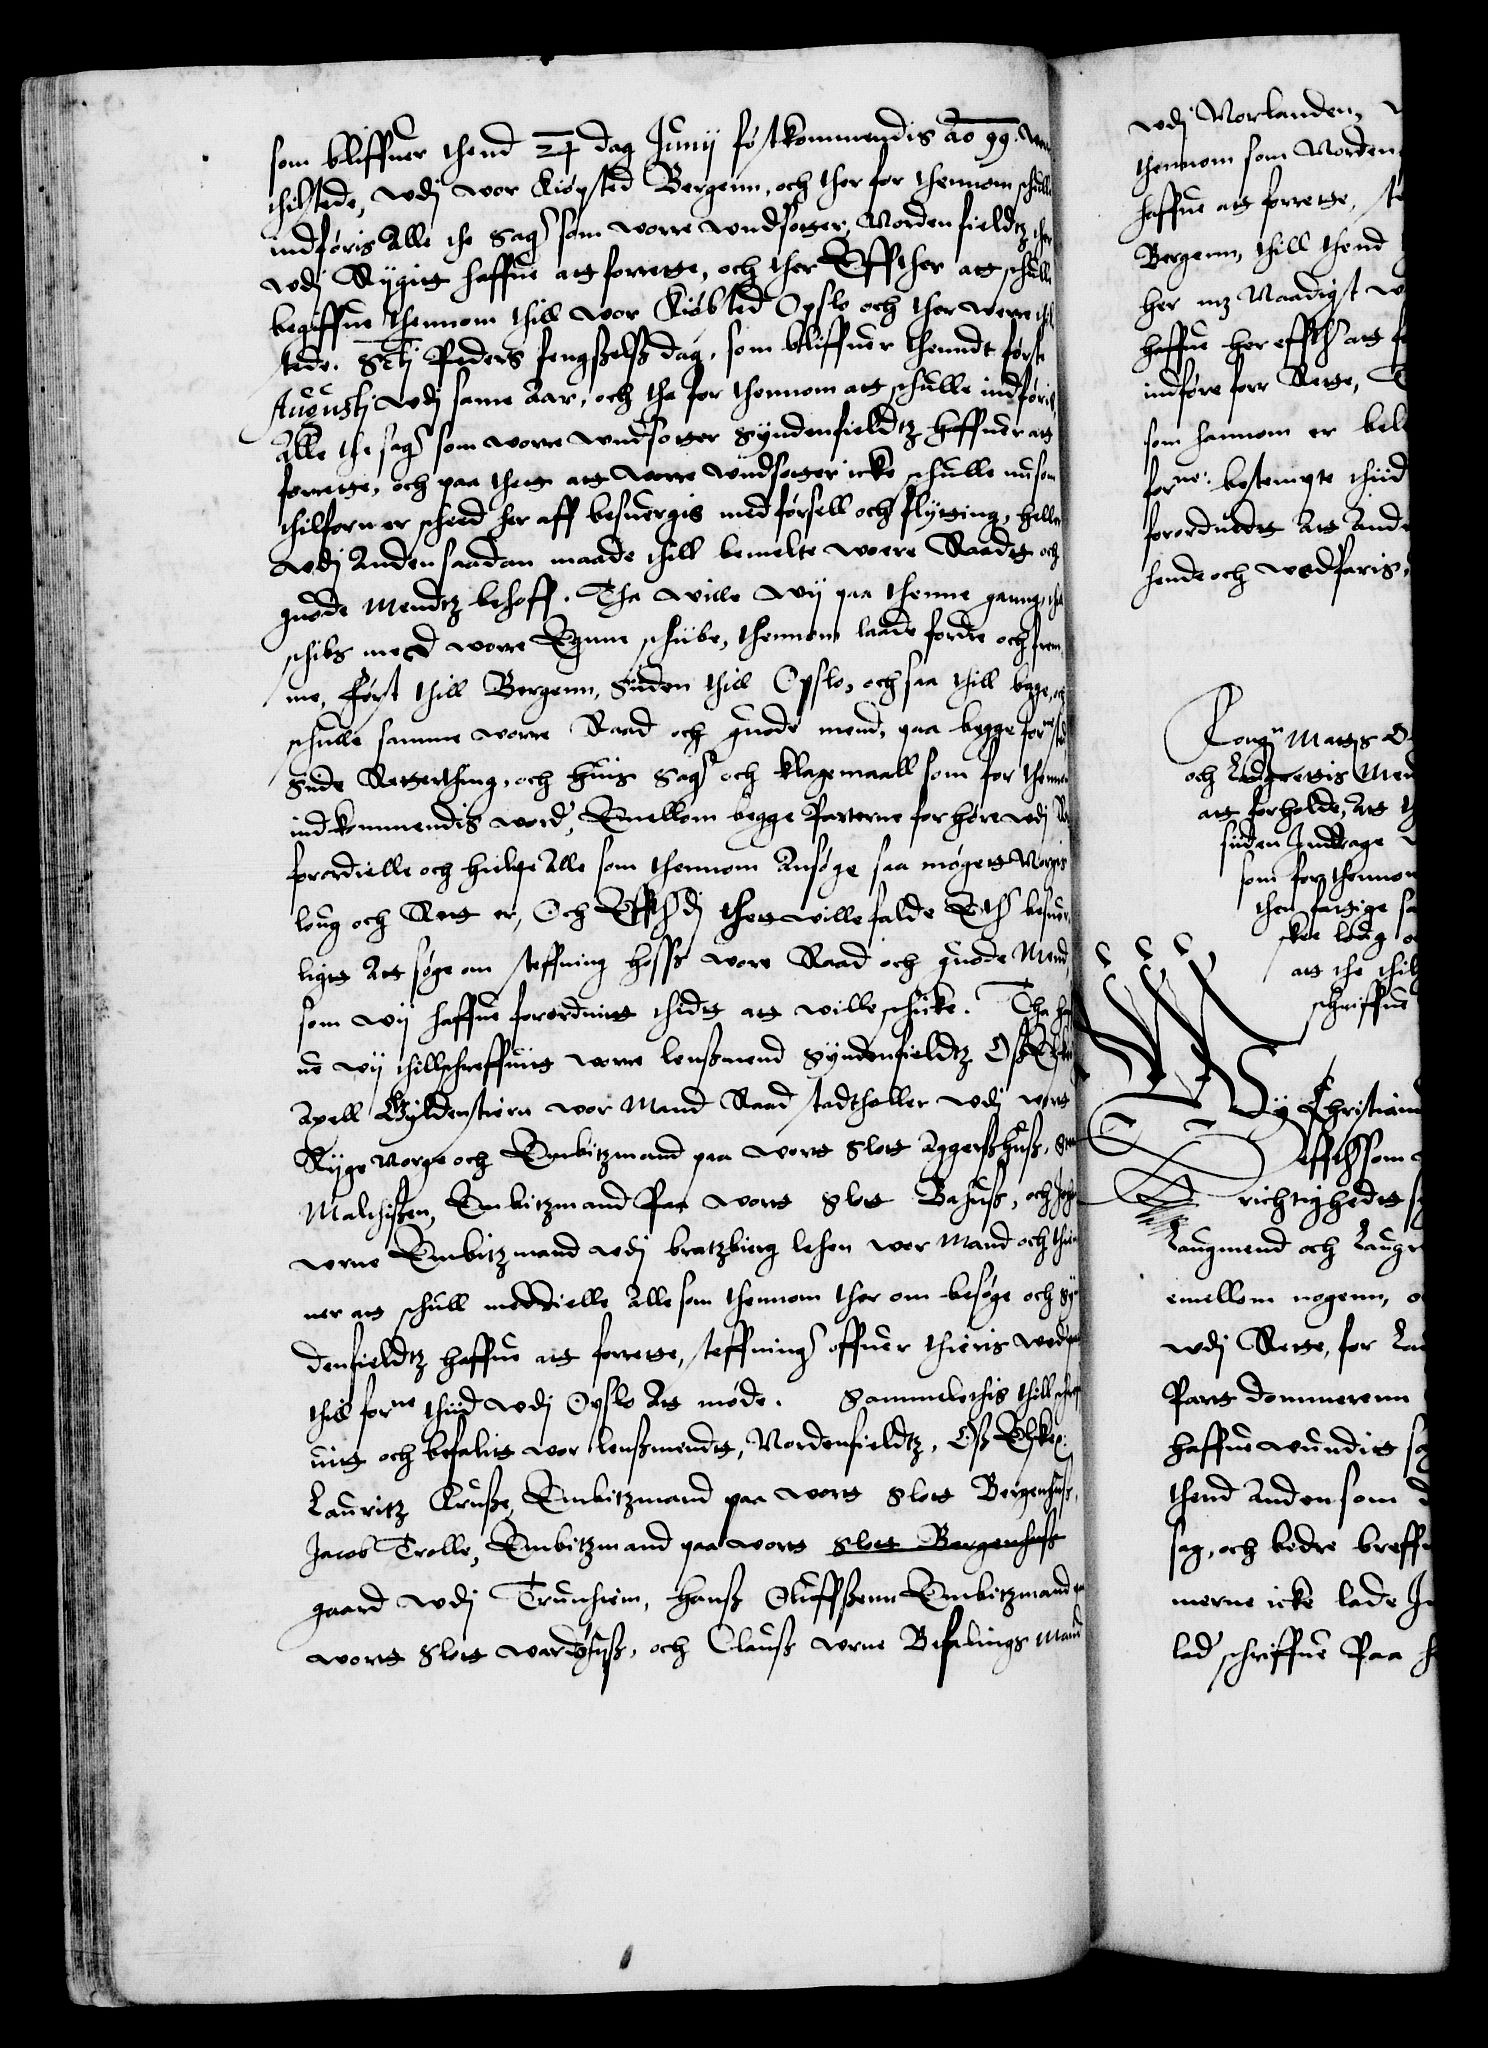 som bliffuer thend 24 dag Junij førstkommendis Ao 99. were
thilstede, wdj wor Kiøpsted Bergenn, och ther for thennom schulle
indføris Alle the Sager som worre wndsotter, Nordenfieldtz ther
wdj Rygitt haffue att forrette, och ther Effther att schulle
begiffue thennom thill wor Kiøbsted Opslo och ther werre thil
stede. Sctj Peders fengßelß dag, som bliffuer thenndt første
Augustj wdj same Aar, och tha for thennom att schulle indføris,
Alle the sager som worre wndsotter Syndenfieldtz haffuer att
forrette, och paa thett att worre wndsotter icke schulle nu som
thilforn er scheed her aff besuergis med førsell och flytting, heller
wdj Anden saadan maade thill bemelte woere Raadtz och
guode Mendtz behoff. Tha wille wij paa thenne gaang, thil
schibs med worre Egnne schiibe, thennom laade fordre och frem
me, først thill Bergenn, Siiden thill Opslo, och saa thill bage, och
schulle samme worre Raad och guode mend, paa begge forne sted
Side Retterthing, och huis Sager och klagemaall som for thennom
indkommendis worder, Emellom begge Parterne forhøre wdj Rette
forordielle och hielpe Alle som thennom Ansøge saa møgett Norgis
loug och Rett er, Och Effther dj thett wille falde Ether besuer
ligtt Att søge om steffning hoss wore Raad och guode Mend,
som wij haffue forordnitt thidt att wille schicke. Tha haf
ue wij thillschreffuitt worre lenßmend Syndenfieldtz Oß Elske
Axell Gyldenstiern wor Mand Raad stadtholler wdj wortt
Ryge Norge och Embitzmand paa wortt Slott Aggerßhuß, Sten
Malthißen, Embitzmand Paa wortt Slott Bahuß, och Joh
wrne Embitzmand wdj bratzbierg lehen wor Mand och thien
ner att schull meddielle Alle som thennom ther om besøge och Sy
denfieldtz haffue att forrette, steffninger offuer thieris wederpart
thill forne thiid wdj Opslo Att møde. Sammeledis thillschreff
uitt och befalitt wor lenßmendtz, Nordenfieldtz, Oß Elske:
Lauritz Kruße, Embitzmand paa wortt Slott Bergenhuß,
Jacob Trolle, Embitzmand paa wortt Slott Bergenhuß
gaard wdj Trunhiem, Hanß Oluffßenn Embitzmand paa
wortt Slott wardøhuß, och Clauß wrne Befalings Mand
wdj Norlanden,
thennom som Norden
haffue att forrette, ste
Bergenn, thill thend
her mz Naadigst
haffue her effther att
indføre forr Rette, T
som hannom er bel
forne: bestempte thiid
forordnedtt Att Ande
hende och wedfaris,
Kong: Matts
och Laugrettis Men
att forholde, Att
siiden Inddrage
som for thennom
then fattige
ske loug
att the thil
schriffue
Wy Christian
Effthersom
richtighedt
Laugmend och Laugr
emellom nogenn,
wdj Rette, for La
Part dommerenn
haffue wundit
thend Anden som
sag, och bedre breffu
merne icke lade
lade schriffue Paa